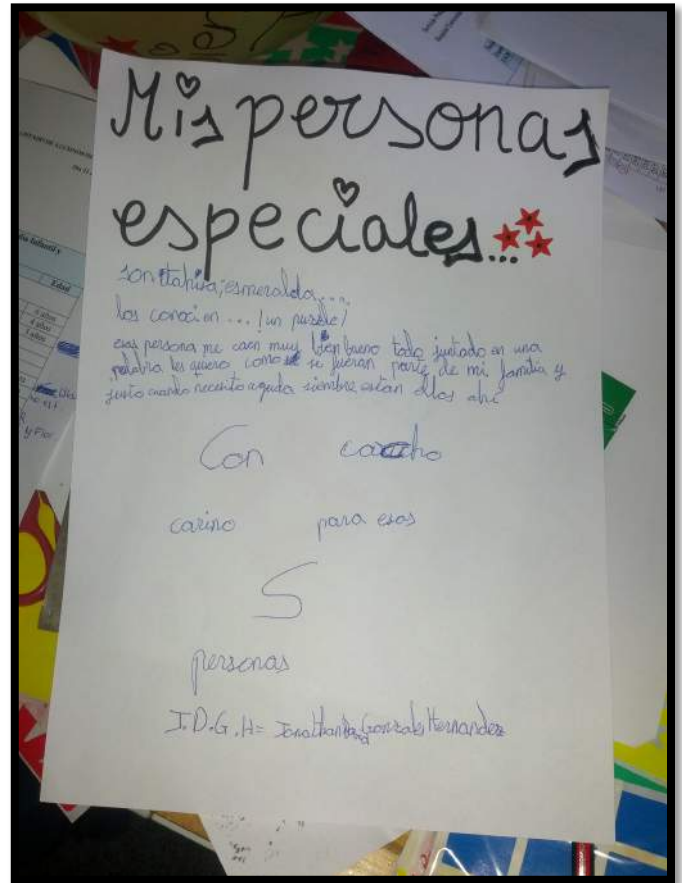 Mis personas
especiales...
son itahisa, esmeralda...
los conoci en ... ¡un puzzle!
esas persona me caen muy bien bueno todo juntado en una
palabra les quiero como si se fueran parte de mi familia y
justo cuando necesito aguda siembre estan ellos ahi
Con
carino para esas
5
personas
J.D.G.H= Jonathan Gonzales Hernandez
Edad
6 años
4 años
y Flor